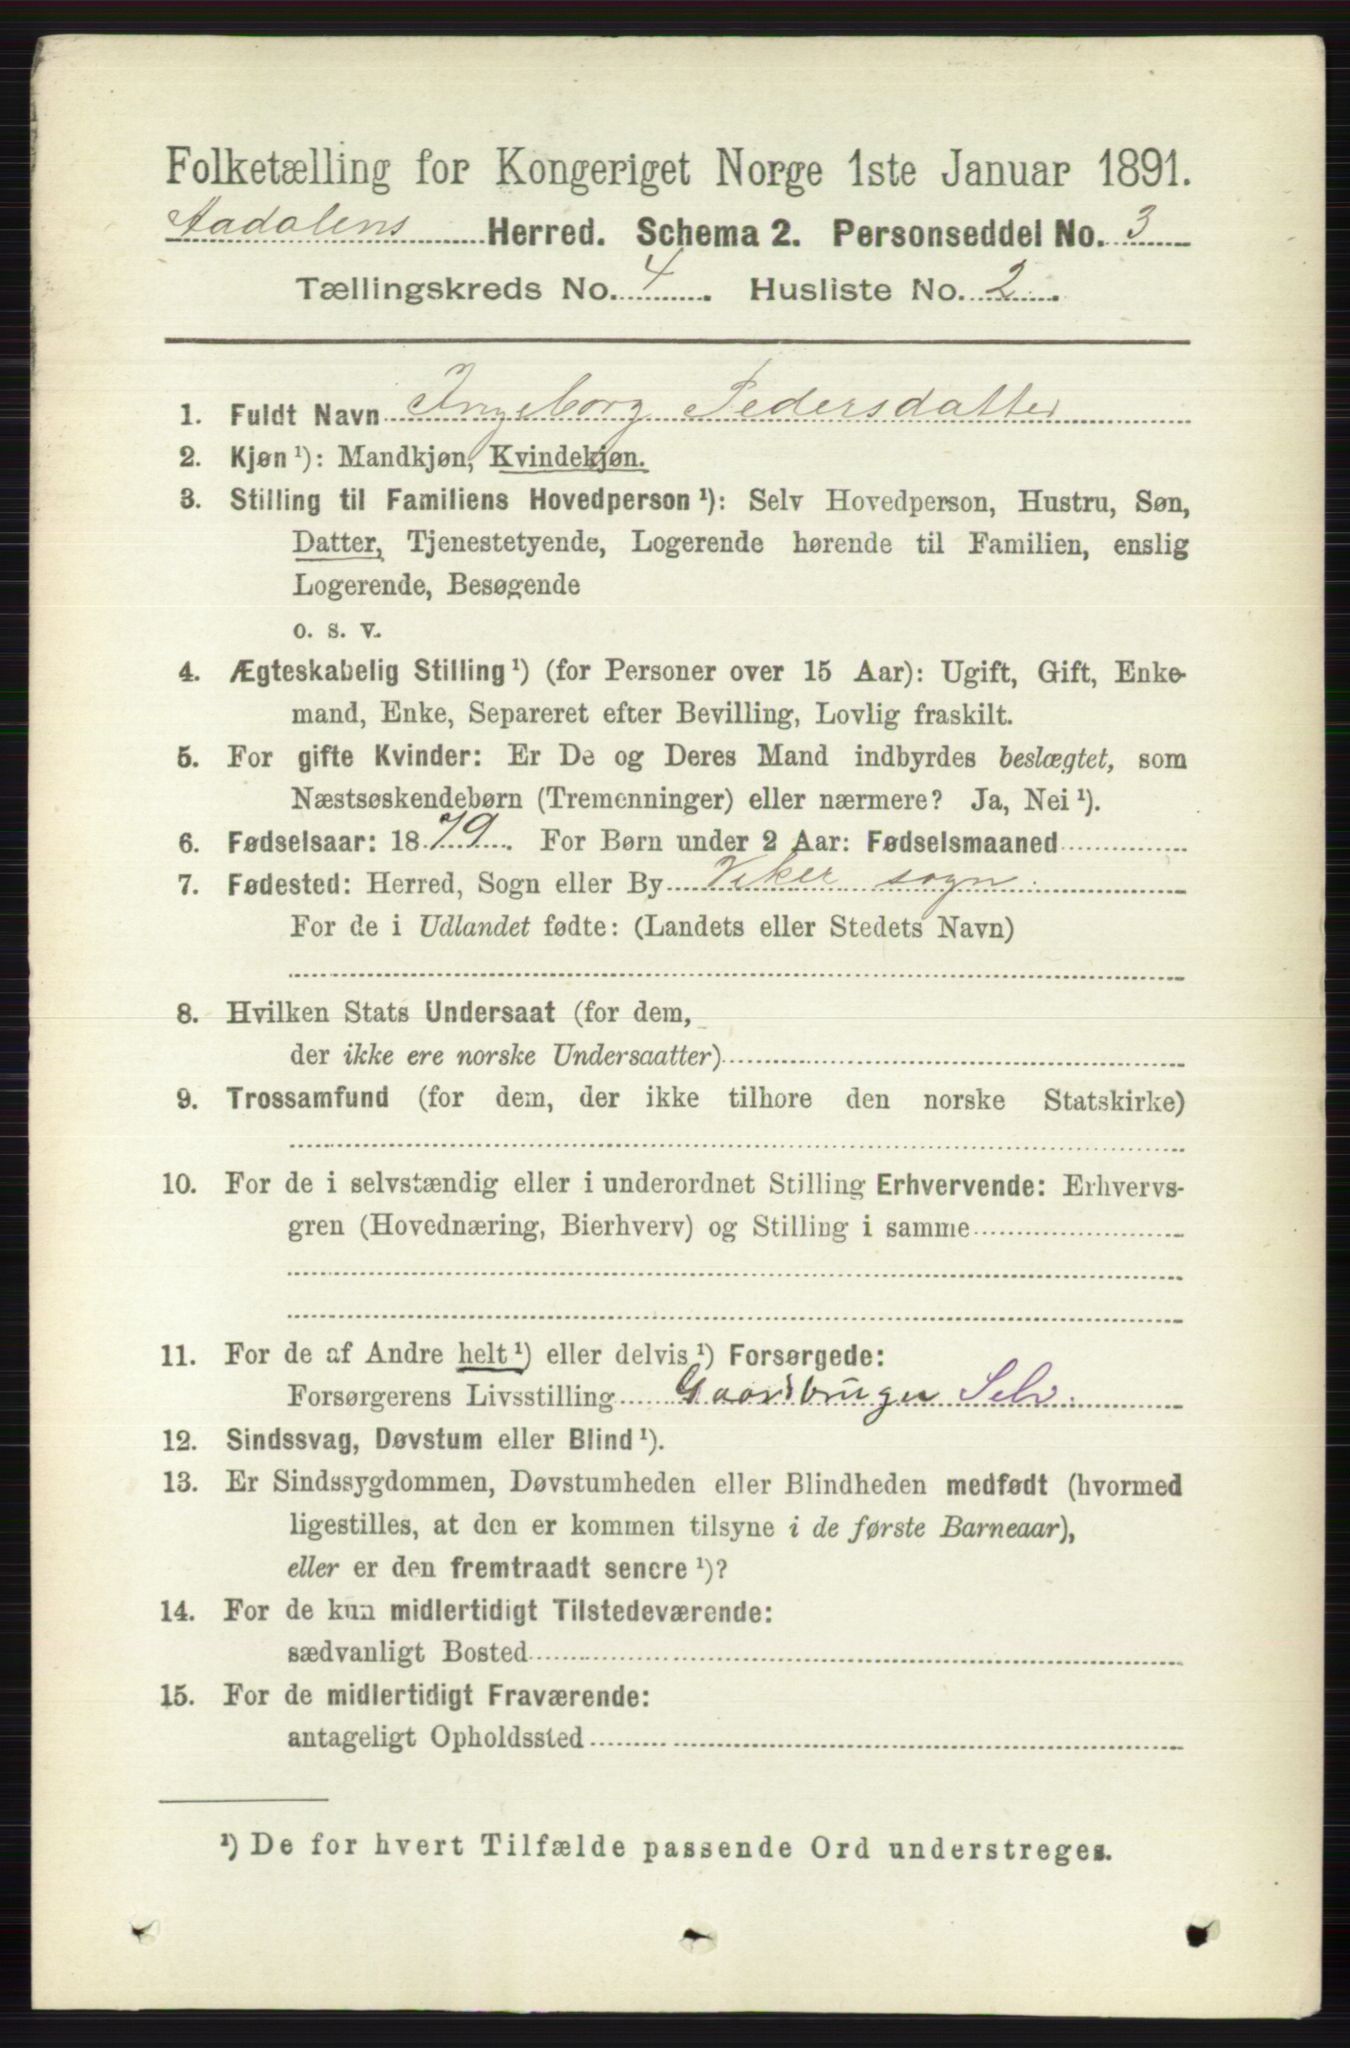 Folketælling for Kongeriget Norge 1ste Januar 1891.
Aadalens Herred. Schema 2. Personseddel No. 3
Tællingskreds No. 4. Husliste No. 2.
1. Fuldt Navn Ingeborg Pedersdatter
2. Kjøn ¹): Mandkjøn, Kvindekjøn.
3. Stilling til Familiens Hovedperson ¹): Selv Hovedperson, Hustru, Søn,
Datter, Tjenestetyende, Logerende hørende til Familien, enslig
Logerende, Besøgende
o. s. v.
4. Ægteskabelig Stilling ¹) (for Personer over 15 Aar): Ugift, Gift, Enke-
mand, Enke, Separeret efter Bevilling, Lovlig fraskilt.
5. For gifte Kvinder: Er De og Deres Mand indbyrdes beslægtet, som
Næstsøskendebørn (Tremenninger) eller nærmere? Ja, Nei ¹).
6. Fødselsaar: 1879. For Børn under 2 Aar: Fødselsmaaned
7. Fødested: Herred, Sogn eller By Viker sogn
For de i Udlandet fødte: (Landets eller Stedets Navn)
8. Hvilken Stats Undersaat (for dem,
der ikke ere norske Undersaatter)
9. Trossamfund (for dem, der ikke tilhore den norske Statskirke)
10. For de i selvstændig eller i underordnet Stilling Erhvervende: Erhvervs-
gren (Hovednæring, Bierhverv) og Stilling i samme
11. For de af Andre helt ¹) eller delvis ¹) Forsørgede:
Forsørgerens Livsstilling Gaardbruger Selv.
12. Sindssvag, Døvstum eller Blind ¹).
13. Er Sindssygdommen, Døvstumheden eller Blindheden medfødt (hvormed
ligestilles, at den er kommen tilsyne i de første Barneaar),
eller er den fremtraadt senere ¹)?
14. For de kun midlertidigt Tilstedeværende:
sædvanligt Bosted
15. For de midlertidigt Fraværende:
antageligt Opholdssted
¹) De for hvert Tilfælde passende Ord understreges.